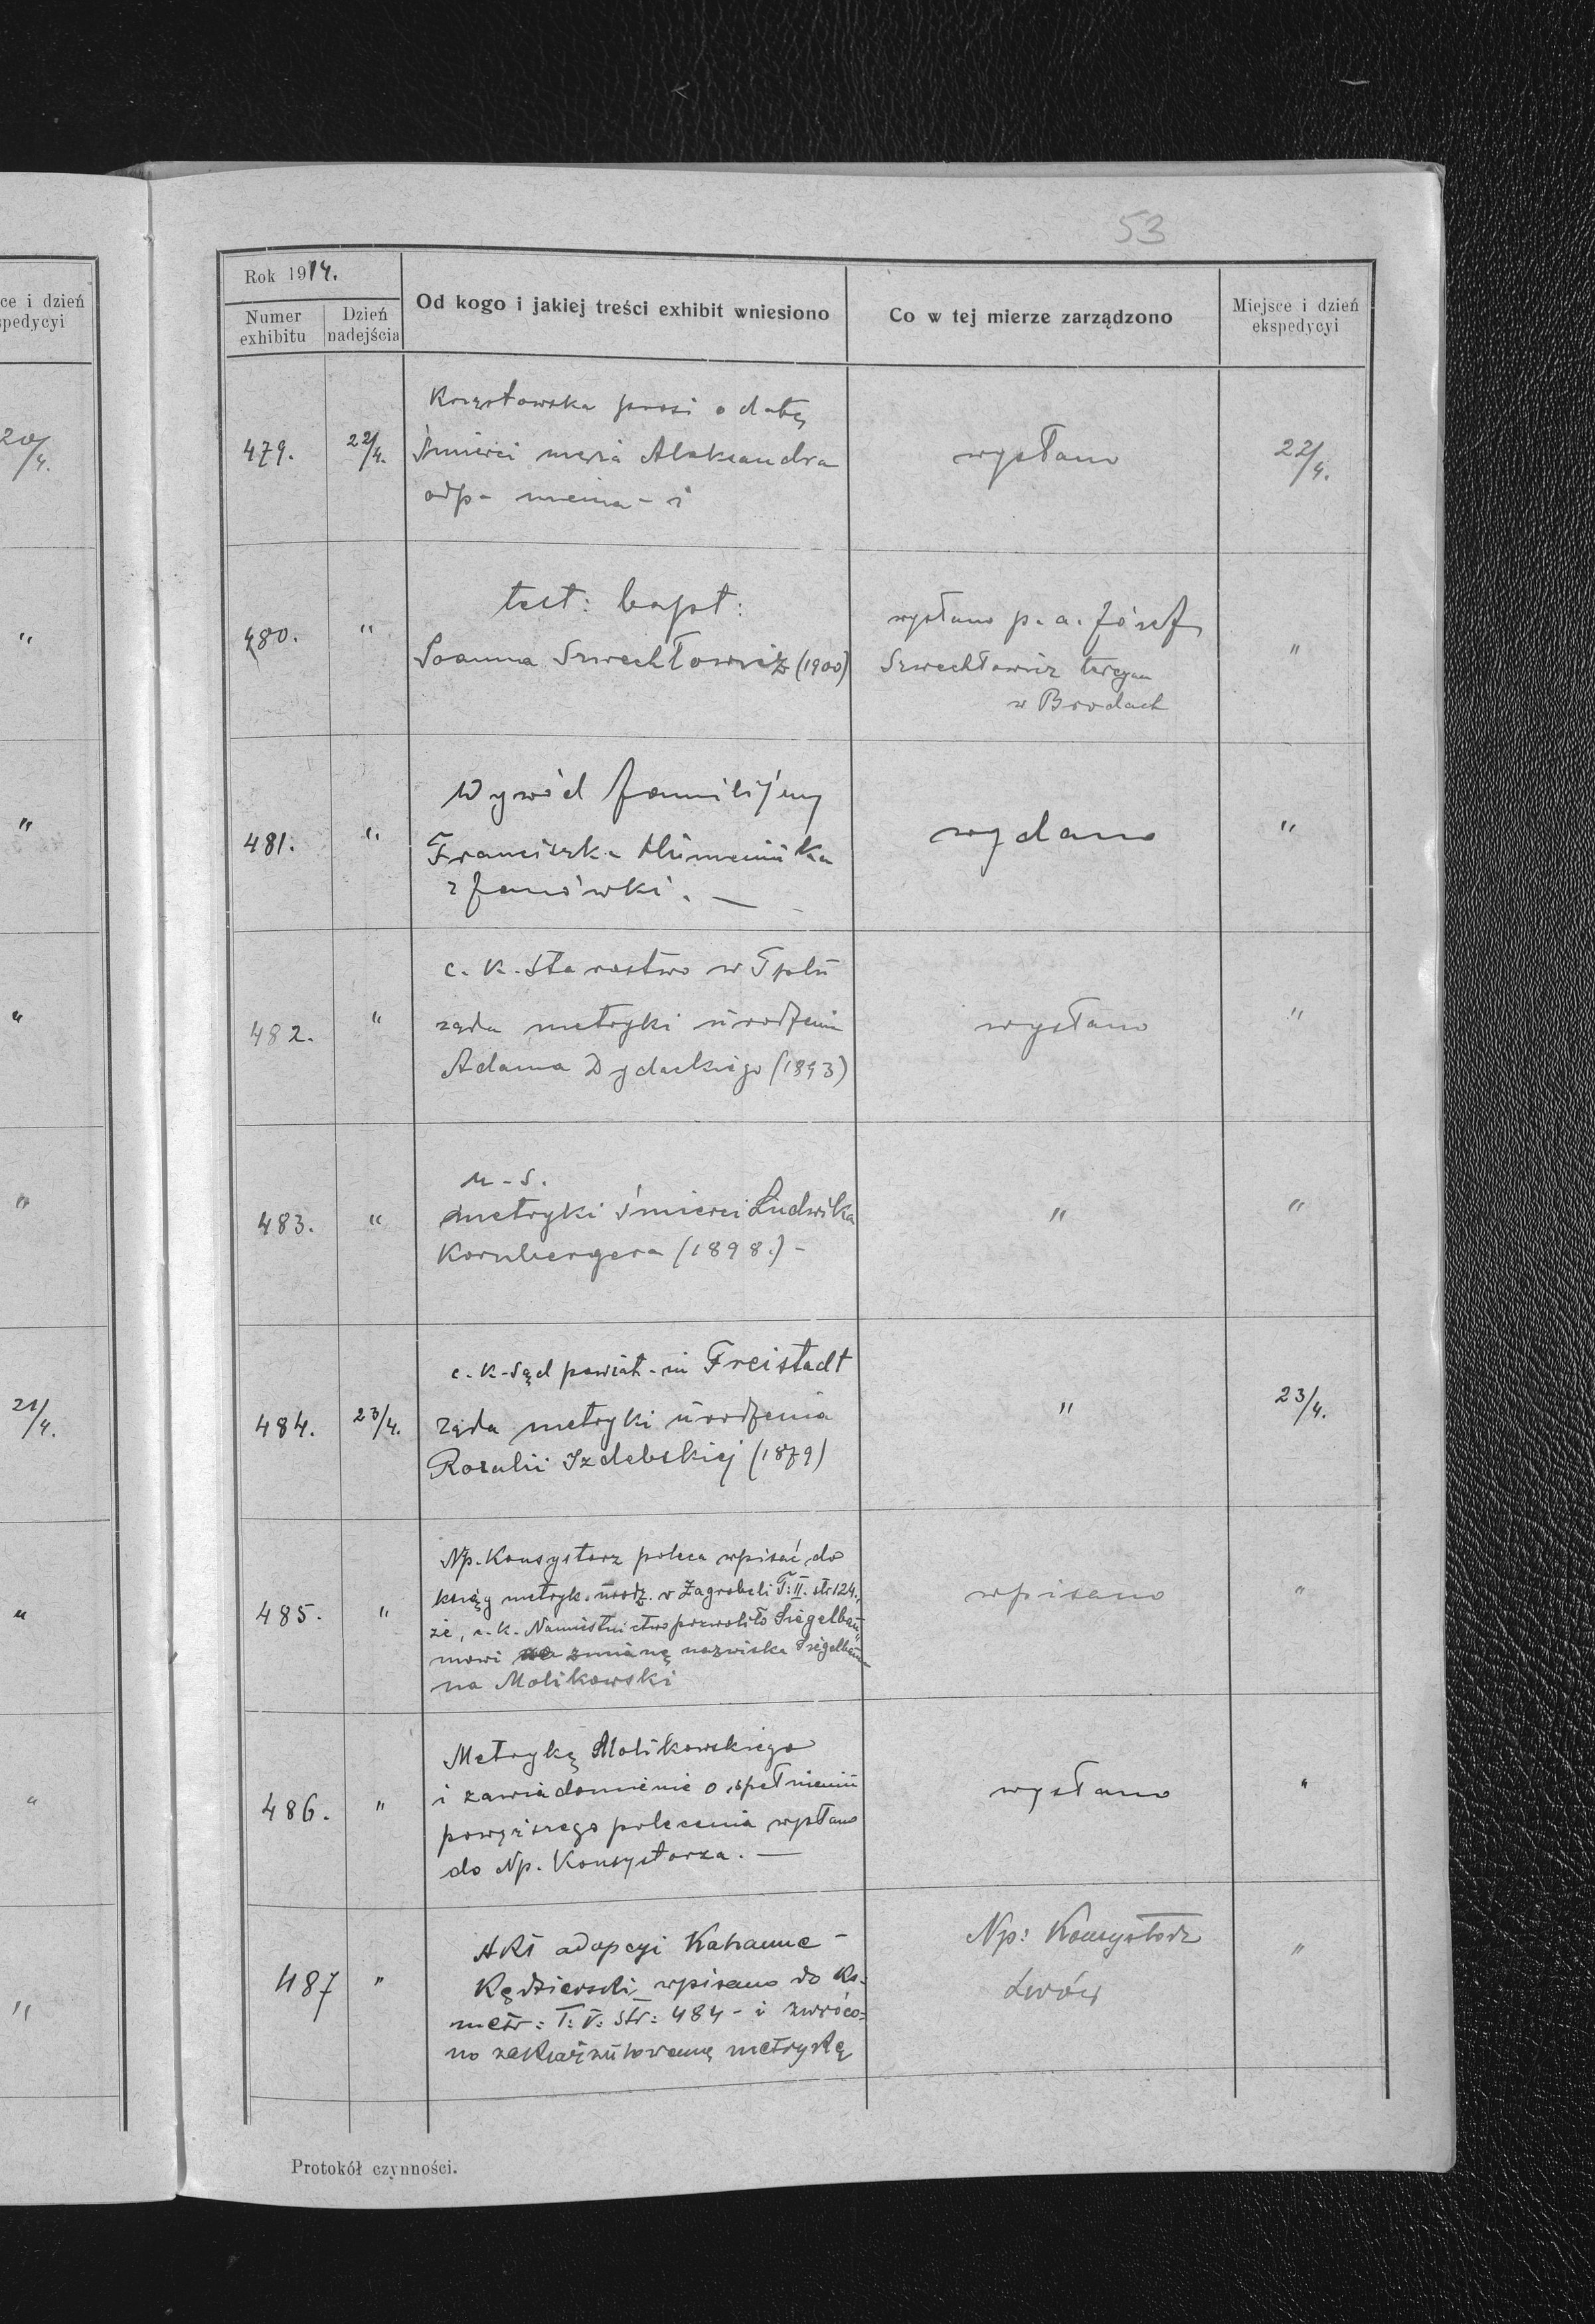 53
Rok 1914.
Numer exhibitu
Dzień nadejścia
Od kogo i jakiej treści exhibit wniesiono
Co w tej mierze zarządzono
Miejsce i dzień ekspedycyi
ce i dzień
spedycyi
20/4.
"
"
"
"
21/4.
"
"
"
479.
22/4.
prosi o datę
śmierci męża Aleksandra
odp-
wysłano
22/4.
480.
"
test: bapt:
Joanna Szwechłowicz (1900)
wysłano p. a. Józef
Szwechłowicz
w Brodach
"
481.
"
Wywód familijny
Franciszka
z Janówki. —
wydano
"
482.
"
c. k. Starostwo w Tpolu
żąda metryki urodzenia
Adama Dydackiego (1893)
wysłano
"
483.
"
metryki śmierci Ludwika
Kornbergera (1898.) -
"
"
484.
23/4.
c. k. Sąd powiat. w Freistadt
żąda metryki urodzenia
Rozalii Izdebskiej (1879)
"
23/4.
485.
"
Np. Konsystorz poleca wpisać do
księg metryk. urodz. w Zagrobeli T: II. str 124.,
że, c. k. Namiestnictwo pozwoliło Siegelbau„
mowi zmianę nazwiska Siegelbauma
na Molikowski
wpisano
"
486.
"
Metrykę Molikowskiego
i zawiadomienie o spełnieniu
powyższego polecenia wysłano
do Np. Konsystorza. —
wysłano
"
487
"
Akt adopcyi Kahanne -
Kędzierski wpisano do ks.
metr: T: V: str: 484 - i zwróco=
no metrykę
Np: Konsystorz
Lwów
"
Protokół czynności.